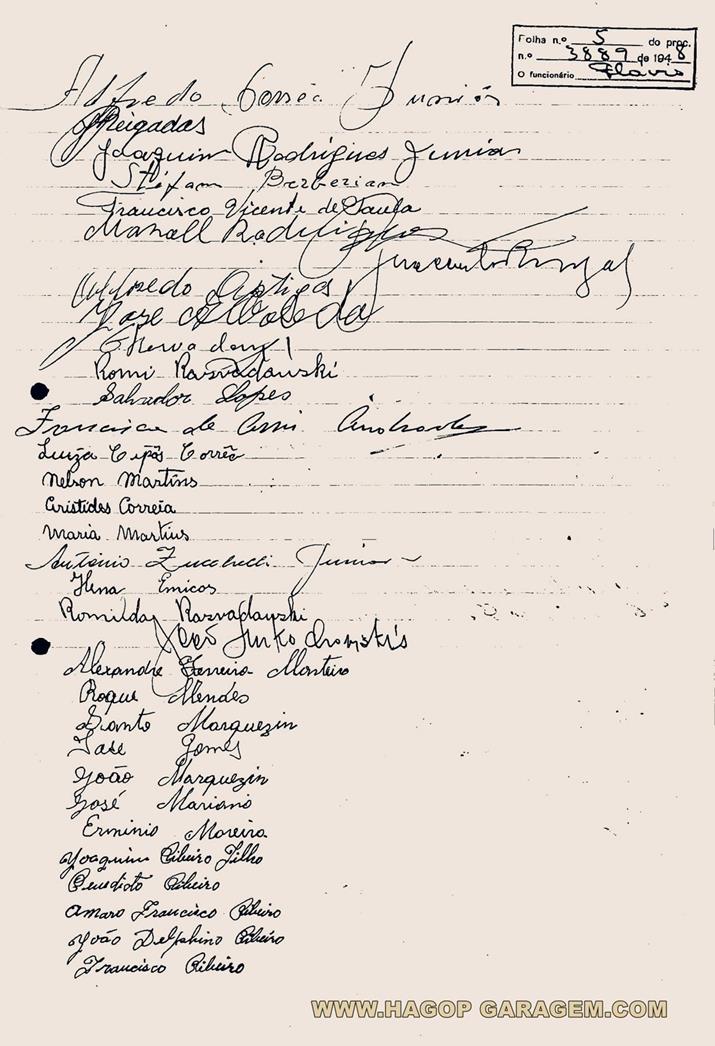 Folha n.º 5 do proc.
n.º 3889 de 1948
O funcionário Flavio
Alfredo Corrêa Junior
Joaquim Rodrigues Junior
Stéfam Berberian
Francisco Vicente de Paula
Manoel Rodrigues
Alfredo
José
Romi Rasvadauski
Salvador Lopes
Francisco de Andrade
Luiza Cipas Corrêa
Nelson Martins
Aristides Correia
Maria Martins
Antonio Zucchelli Junior
Hena Emicos
Romilda Rasvadauski
João
Alexandre Ferreira Monteiro
Roque Mendes
Santo Marquezin
José Gomes
João Marquezin
José Mariano
Erminio Moreira
Joaquim Ribeiro Filho
Benedito Ribeiro
Amaro Francisco Ribeiro
João Delphino Ribeiro
Francisco Ribeiro
WWW.HAGOP GARAGEM.COM